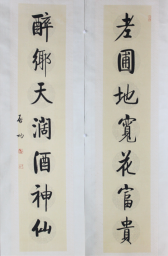 老圃地寬花富貴
醉鄉天濶酒神仙